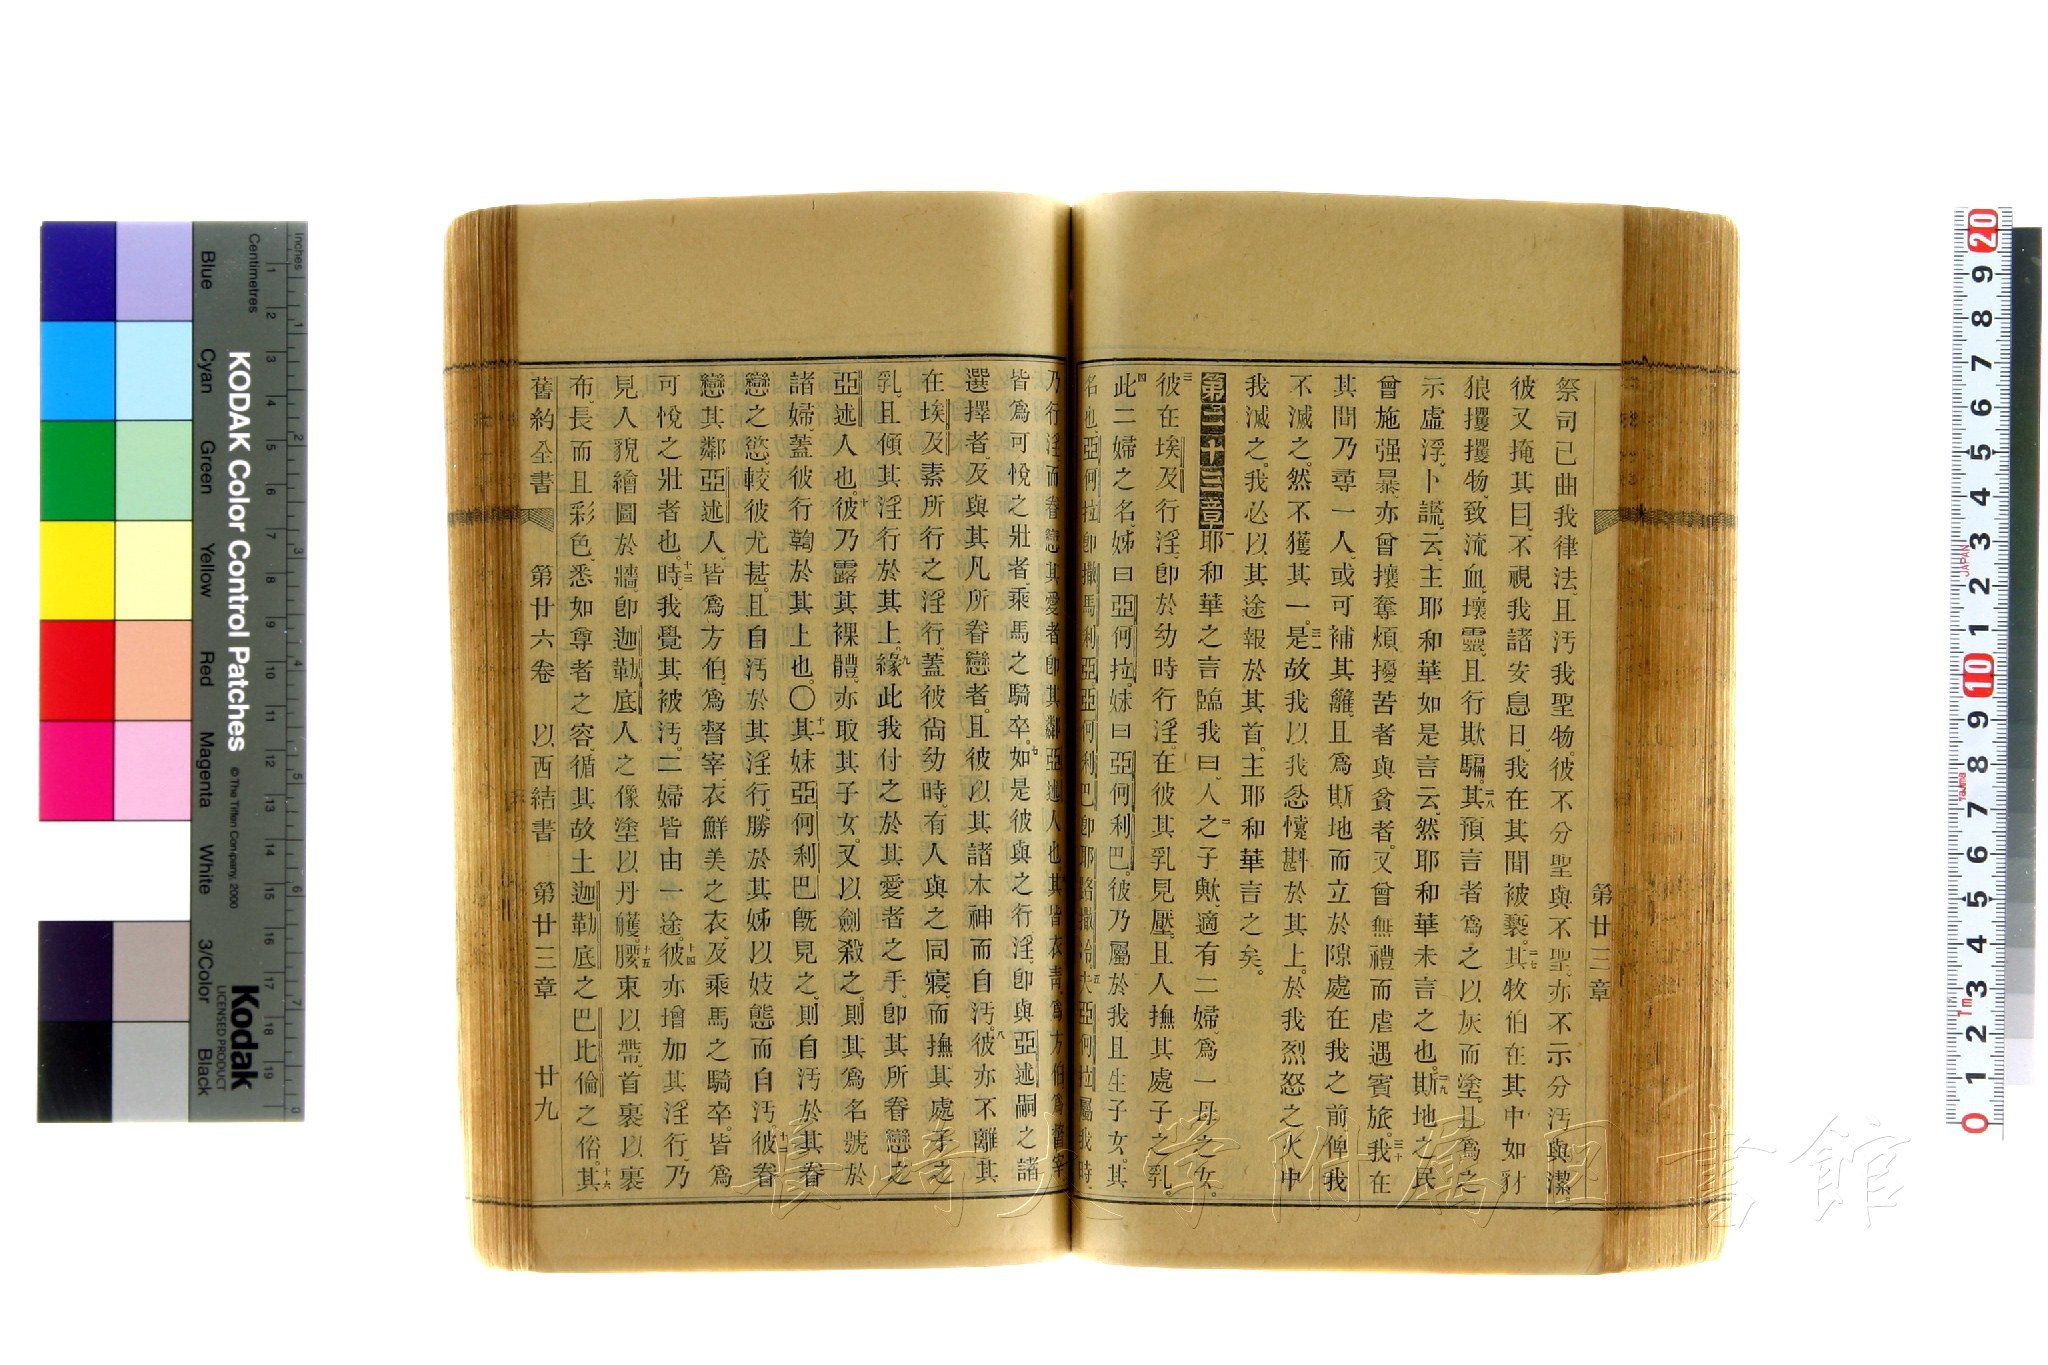 第廿三章
祭司已曲我律法、且汚我聖物。彼不分聖與不聖、亦不示分汚與潔。
彼又掩其目、不視我諸安息日。我在其間被褻。二七其牧伯在其中如豺
狼攫攫物、致流血、壞靈、且行欺騙。二八其預言者爲之以灰而塗。且爲之
示虛浮、卜謊、云、主耶和華如是言云、然耶和華未言之也。二九斯地之民
曾施强暴、亦曾攘奪煩擾苦者與貧者。又曾無禮而虐遇賓旅。三十我在
其間乃尋一人、或可補其籬、且爲斯地而立於隙處在我之前俾我
不滅之。然不獲其一。三一是故我以我忿懥斟於其上。於我烈怒之火中
我滅之。我必以其途報於其首。主耶和華言之矣。
第二十三章一耶和華之言臨我曰、二人之子歟、適有二婦、爲一母之女。
三彼在埃及行淫、卽於幼時行淫。在彼其乳見壓、且人撫其處子之乳。
四此二婦之名、姊曰亞何拉、妹曰亞何利巴。彼乃屬於我且生子女。其
名也、亞何拉卽撒馬利亞、亞何利巴卽耶路撒冷。五夫亞何拉屬我時、
乃行淫而眷戀其愛者卽其鄰亞述人也。六其皆衣靑、爲方伯、爲督宰、
皆爲可悅之壯者、乘馬之騎卒。七如是彼與之行淫、卽與亞述嗣之諸
選擇者、及與其凡所眷戀者。且彼以其諸木神而自汚。八彼亦不離其
在埃及素所行之淫行。蓋彼尙幼時、有人與之同寢、而撫其處子之
乳、且傾其淫行於其上。九緣此我付之於其愛者之手、卽其所眷戀之
亞述人也。十彼乃露其裸體、亦取其子女、又以劍殺之。則其爲名號於
諸婦蓋彼行鞫於其上也。〇十一其妹亞何利巴旣見之、則自汚於其眷
戀之慾較彼尤甚。且自汚於其淫行、勝於其姊以妓態而自汚。十二彼眷
戀其鄰亞述人、皆爲方伯、爲督宰、衣鮮美之衣、及乘馬之騎卒。皆爲
可悅之壯者也。十三時、我覺其被汚。二婦皆由一途。十四彼亦增加其淫行、乃
見人貌繪圖於牆、卽迦勒底人之像塗以丹雘。十五腰束以帶、首裹以裹
布、長而且彩色、悉如尊者之容、循其故土迦勒底之巴比倫之俗。十六其
舊約全書 第廿六卷 以西結書 第廿三章 廿九
KODAK Color Control Patches
© The Tiffen Company, 2000
Kodak
LICENSED PRODUCT
Inches
Centimetres
Blue Cyan Green Yellow Red Magenta White 3/Color Black
長崎大学附属図書館
JAPAN